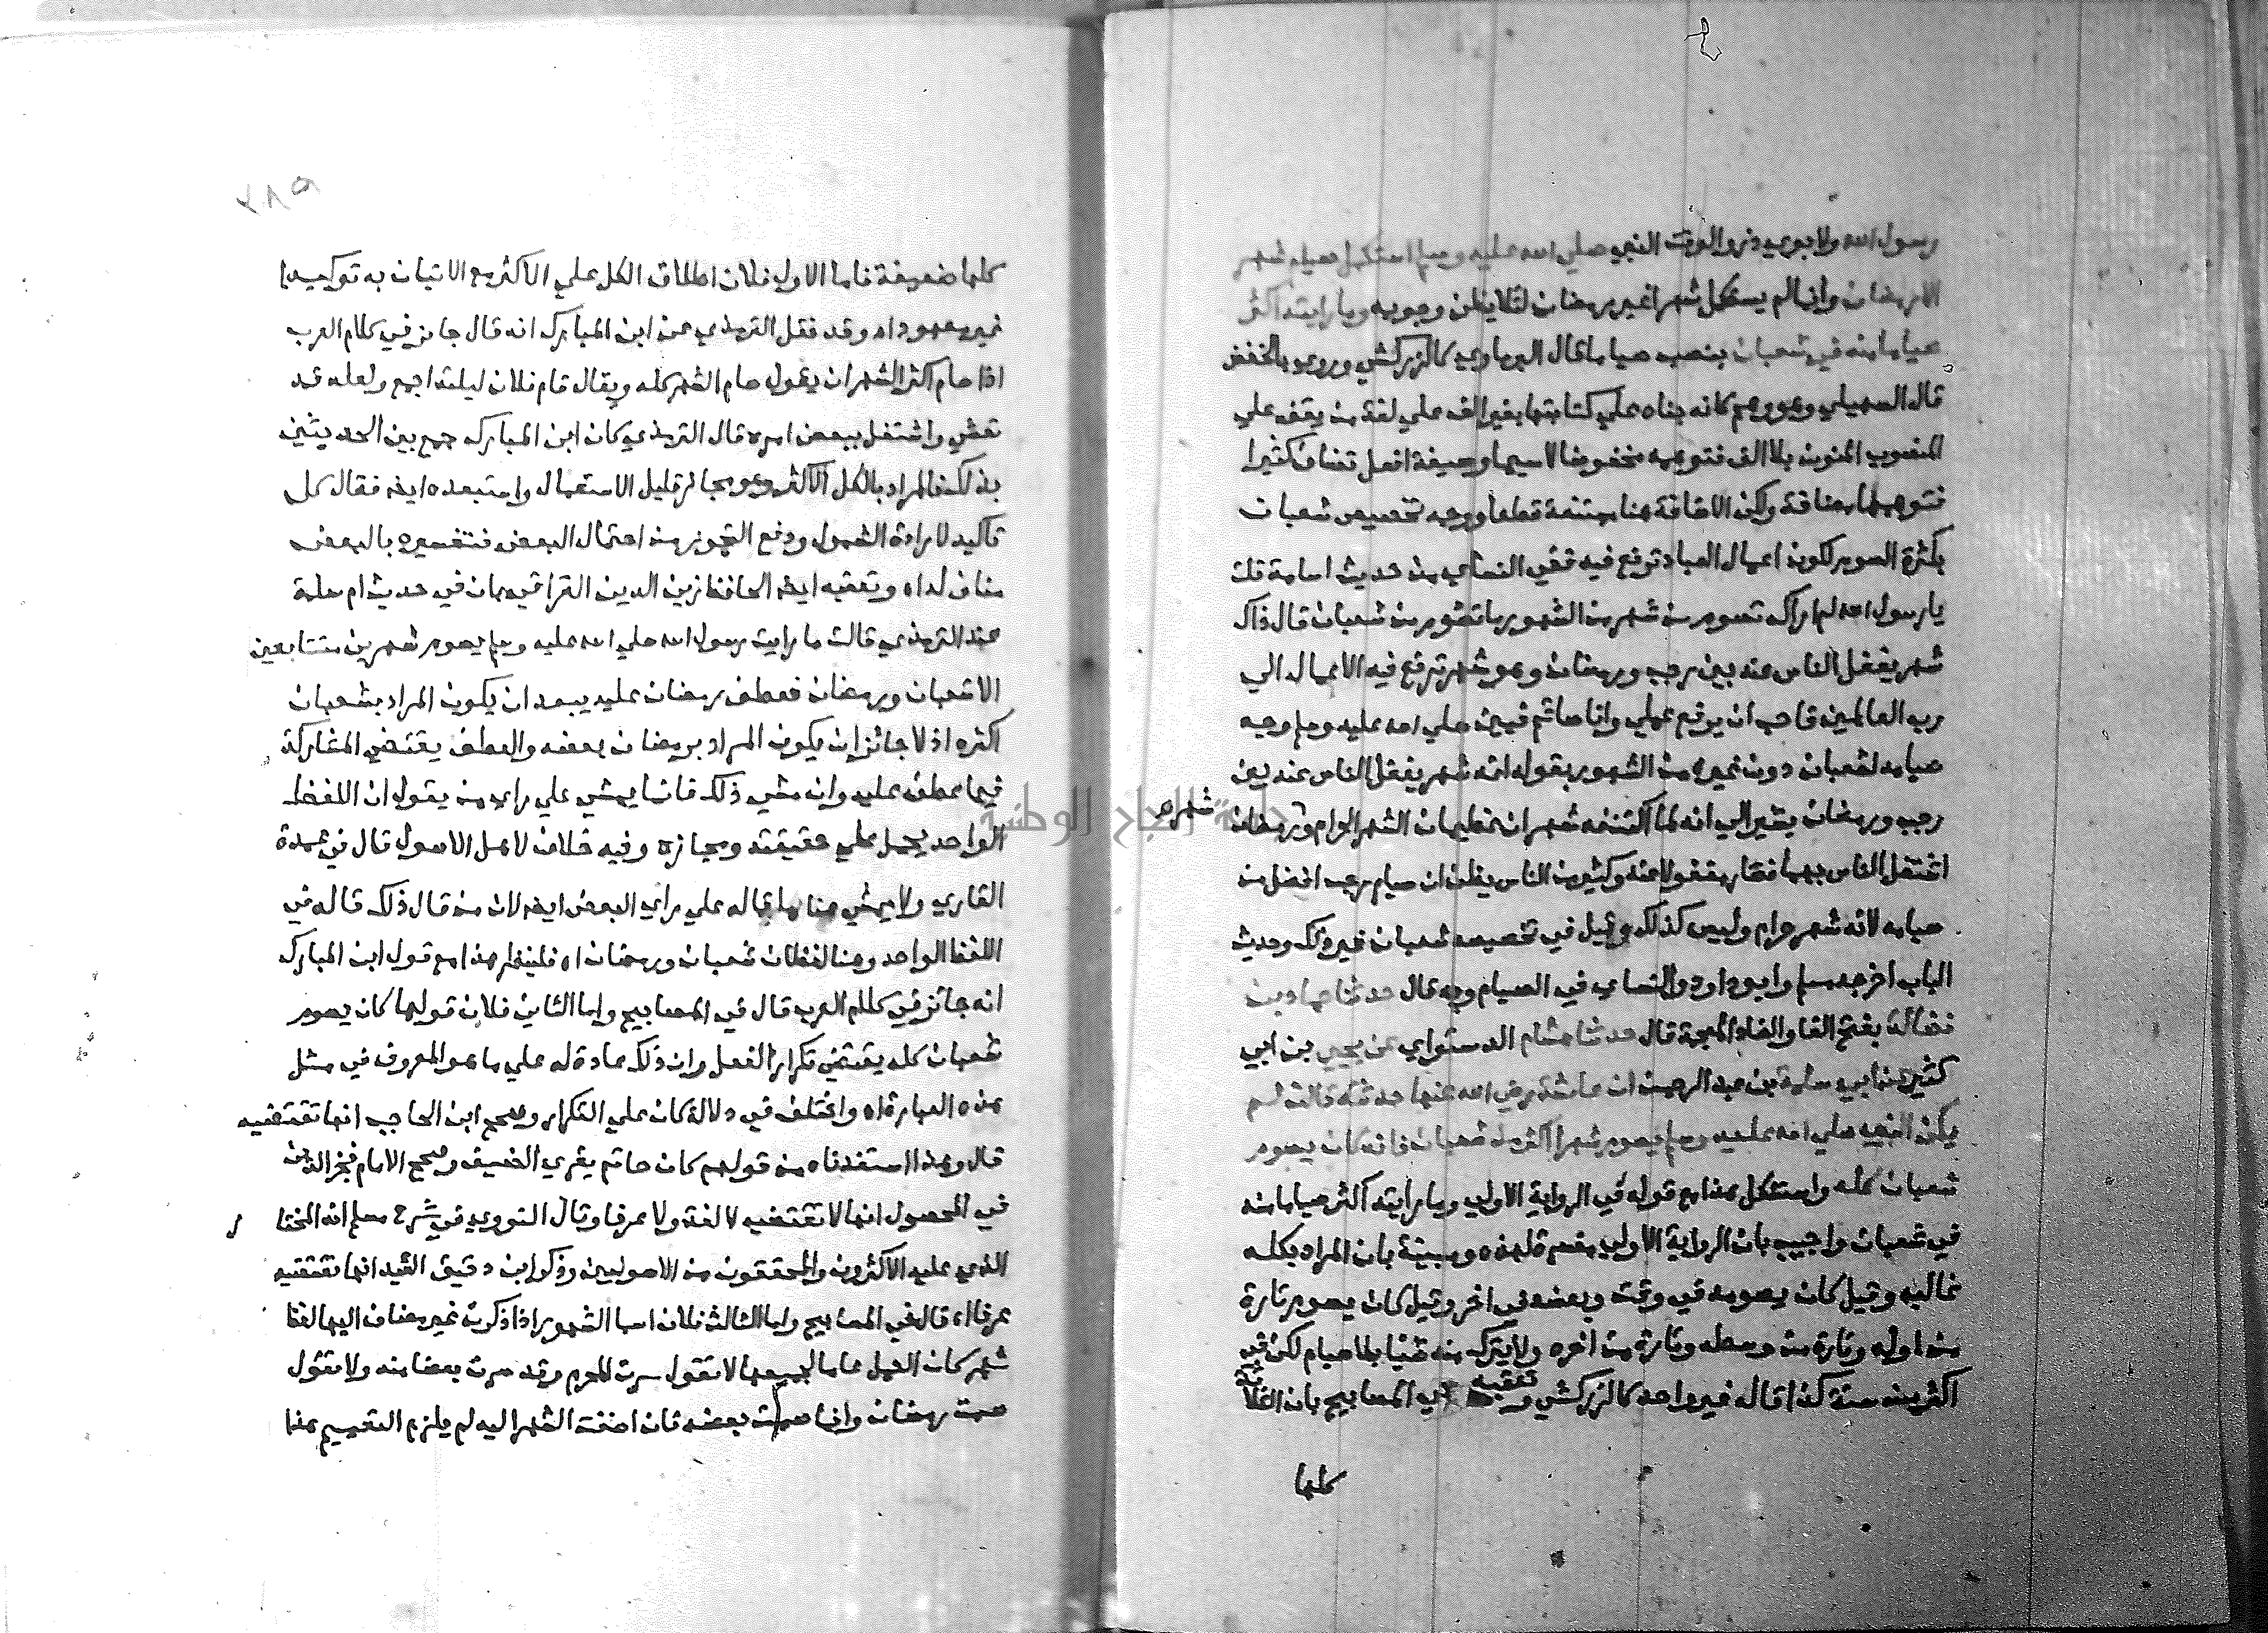 رسول الله ولابوي ذر والوقت النبي صلي الله عليه وسلم استكمل صيام شهر
الا رمضان وانما لم يستكمل شهرا غير رمضان لئلا يظن وجوبه وما رايته اكثر
صياما منه في شعبان بنصب صياما قال البرماوي كالزركشي وروي بالخفض
قال السهيلي وهو وهم كانه بناه علي كتابتها بغير الف علي لغة من يقف علي
المنصوب المنون بلا الف فتوهمه مخفوضا لاسيما وصيغة افعل تضاف كثيرا
فتوهمها مضافة ولكن الاضافة هنا ممتنعة قطعا ووجه تخصيص شعبان
بكثرة الصوم لكون اعمال العباد ترفع فيه ففي النسائي من حديث اسامة قلت
يا رسول الله لم اراك تصوم من شهر من الشهور ما تصوم من شعبان قال ذاك
شهر يغفل الناس عنه بين رجب ورمضان وهو شهر ترفع فيه الاعمال الي
رب العالمين فاحب ان يرفع عملي وانا صائم فبين صلي الله عليه وسلم وجه
صيامه لشعبان دون غيره من الشهور بقوله انه شهر يغفل الناس عنه بين
رجب ورمضان يشير الي انه لما اكتنفه شهران عظيمان الشهر الحرام وشهر رمضان
اشتغل الناس بهما فصار مغفولا عنه وكثير من الناس يظن ان صيام رجب افضل من
صيامه لانه شهر حرام وليس كذلك وقيل في تخصيصه شعبان غير ذلك وحديث
الباب اخرجه مسلم وابو داود والنسائي في الصيام وبه قال حدثنا معاذ بن
فضالة بفتح الفا والضاد المعجمة قال حدثنا هشام الدستوايي عن يحيي بن ابي
كثير عن ابي سلمة بن عبد الرحمن ان عائشة رضي الله عنها حدثته قالت لم
يكن النبي صلي الله عليه وسلم يصوم شهرا اكثر من شعبان فانه كان يصوم
شعبان كله واستشكل هذا مع قوله في الرواية الاولي وما رايته اكثر صياما منه
في شعبان واجيب بان الرواية الاولي مفسرة لهذه ومبينة بان المراد بكله
غالبه وقيل كان يصومه في وقت وبعضه في اخر وقيل كان يصوم تارة
من اوله وتارة من وسطه وتارة من اخره ولا يترك منه شيئا بلا صيام لكن في
اكثر من سنة كذا قاله غير واحد كالزركشي وتعقبه في المصابيح بان الثلاثة
كلها
٢٨٩
كلها ضعيفة فاما الاول فلان اطلاق الكل علي الاكثر مع الاتيان به توكيدا
غير معهود اه وقد نقل الترمذي عن ابن المبارك انه قال جائز في كلام العرب
اذا صام اكثر الشهر ان يقول صام الشهر كله ويقال قام فلان ليلته اجمع ولعله قد
تعشي واشتغل ببعض امره قال الترمذي كان ابن المبارك جمع بين الحديثين
بذلك فالمراد بالكل الاكثر وهو مجاز قليل الاستعمال واستبعده ايضا فقال كل
تاكيد لارادة الشمول ودفع التجوز من احتمال البعض فتفسيره بالبعض
مناف له اه وتعقبه ايضا الحافظ زين الدين العراقي بان في حديث ام سلمة
عند الترمذي قالت ما رايت رسول الله صلي الله عليه وسلم يصوم شهرين متتابعين
الا شعبان ورمضان فعطف رمضان عليه يبعد ان يكون المراد بشعبان
اكثره اذ لا جائز ان يكون المراد برمضان بعضه والعطف يقتضي المشاركة
فيما عطف عليه وان مشي ذلك فانما يمشي علي راي من يقول ان اللفظ
الواحد يحمل علي حقيقته ومجازه وفيه خلاف لاهل الاصول قال في عمدة
القاري ولا يمشي هنا ما قاله علي راي البعض ايضا لان من قال ذلك قاله في
اللفظ الواحد وهنا لفظان شعبان ورمضان اه فلينظر هذا مع قول ابن المبارك
انه جائز في كلام العرب قال في المصابيح واما الثاني فلان قولها كان يصوم
شعبان كله يقتضي تكرار الفعل وان ذلك عادة له علي ما هو المعروف في مثل
هذه العبارة اه واختلف في دلالة كان علي التكرار وصحح ابن الحاجب انها تقتضيه
قال وهذا استفدناه من قولهم كان حاتم يقري الضيف وصحح الامام فخر الدين
في المحصول انها لا تقتضيه لا لغة ولا عرفا وقال النووي في شرح مسلم انه المختار
الذي عليه الاكثرون والمحققون من الاصوليين وذكر ابن دقيق العيد انها تقتضيه
عرفا اه قال في المصابيح واما الثالث فلان اسما الشهور اذا ذكرت غير مضاف اليها لفظ
شهر كان العمل عاما لجميعها لا تقول سرت المحرم وقد سرت بعضا منه ولا تقول
صمت رمضان وانما صمت بعضه فان اضفت الشهر اليه لم يلزم التعميم هذا